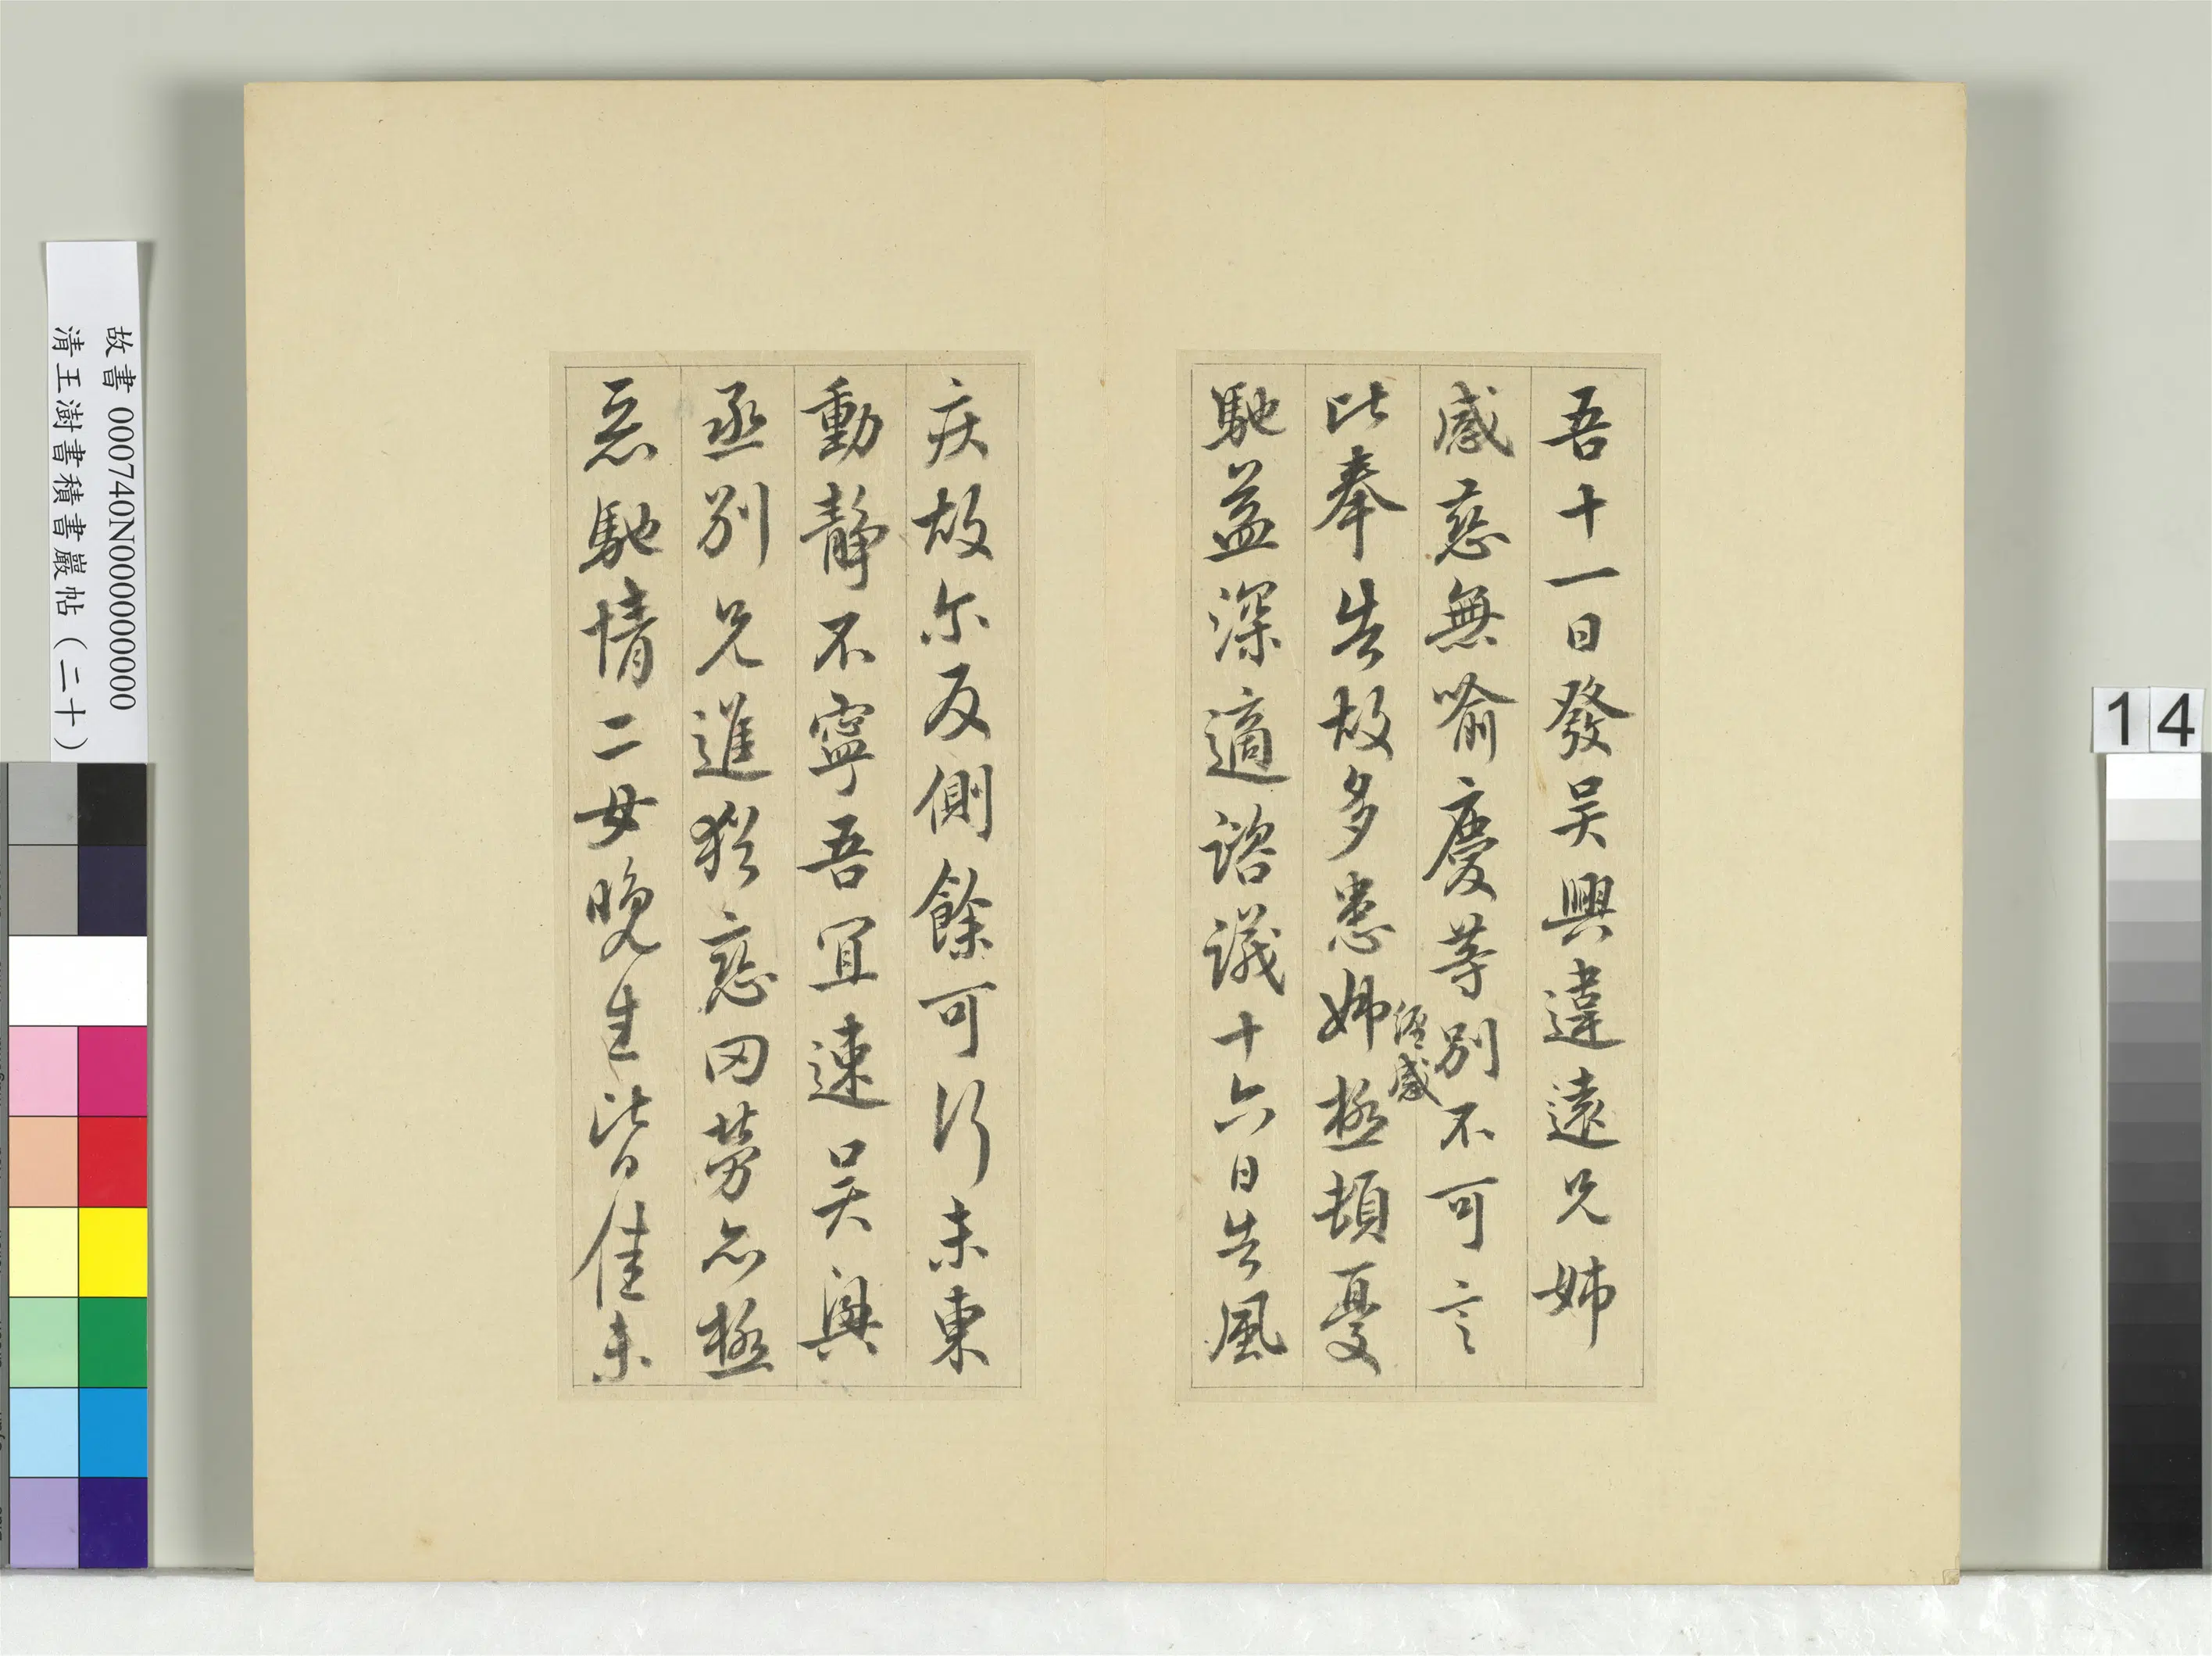 吾十一日發吳興違遠兄姊
感慈無喻慶等別不可言
比奉告故多患姊經感極頓憂
馳益深適諮議十六日告風
疾故尔反側餘可行未東
動靜不寧吾宜速吳興
丞別兄進猶戀罔勞亦極
惡馳情二女晚生皆佳未
故書 000740N000000000
清王澍書積書巖帖（二十）
14